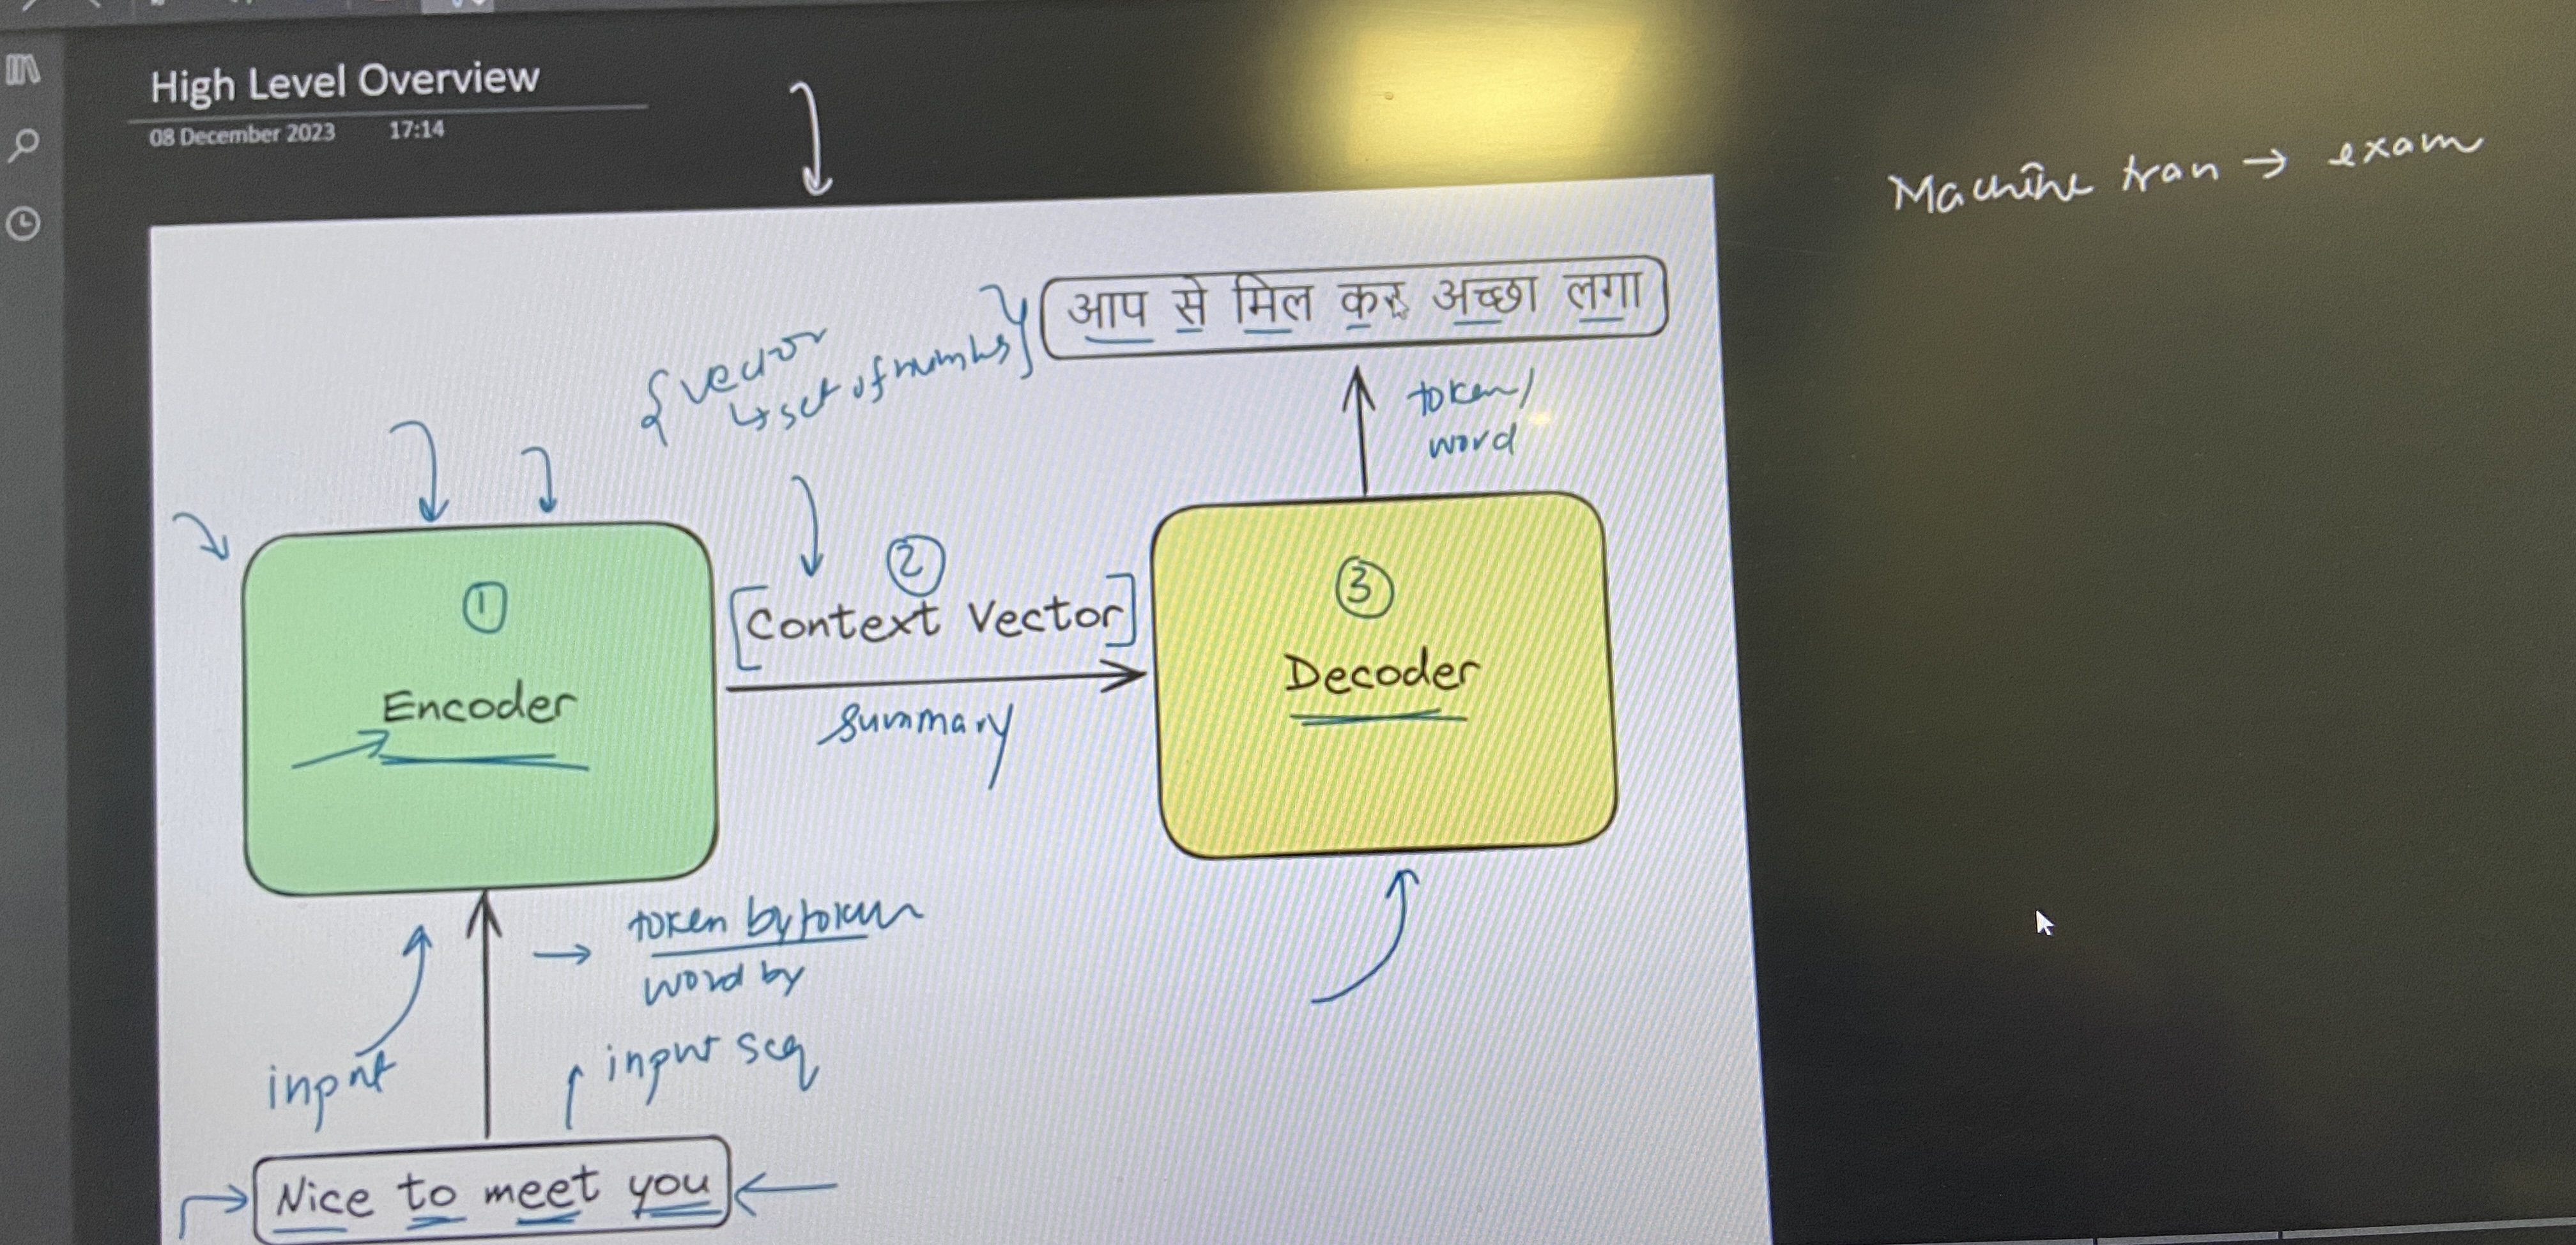 High Level Overview
08 December 2023 17:14
Machine tran → exam
आप से मिल कर अच्छा लगा
{ vector
↳ set of numbers }
token/
word
①
Encoder
②
[Context Vector]
summary
③
Decoder
→ token by token
word by
input
input seq
Nice to meet you